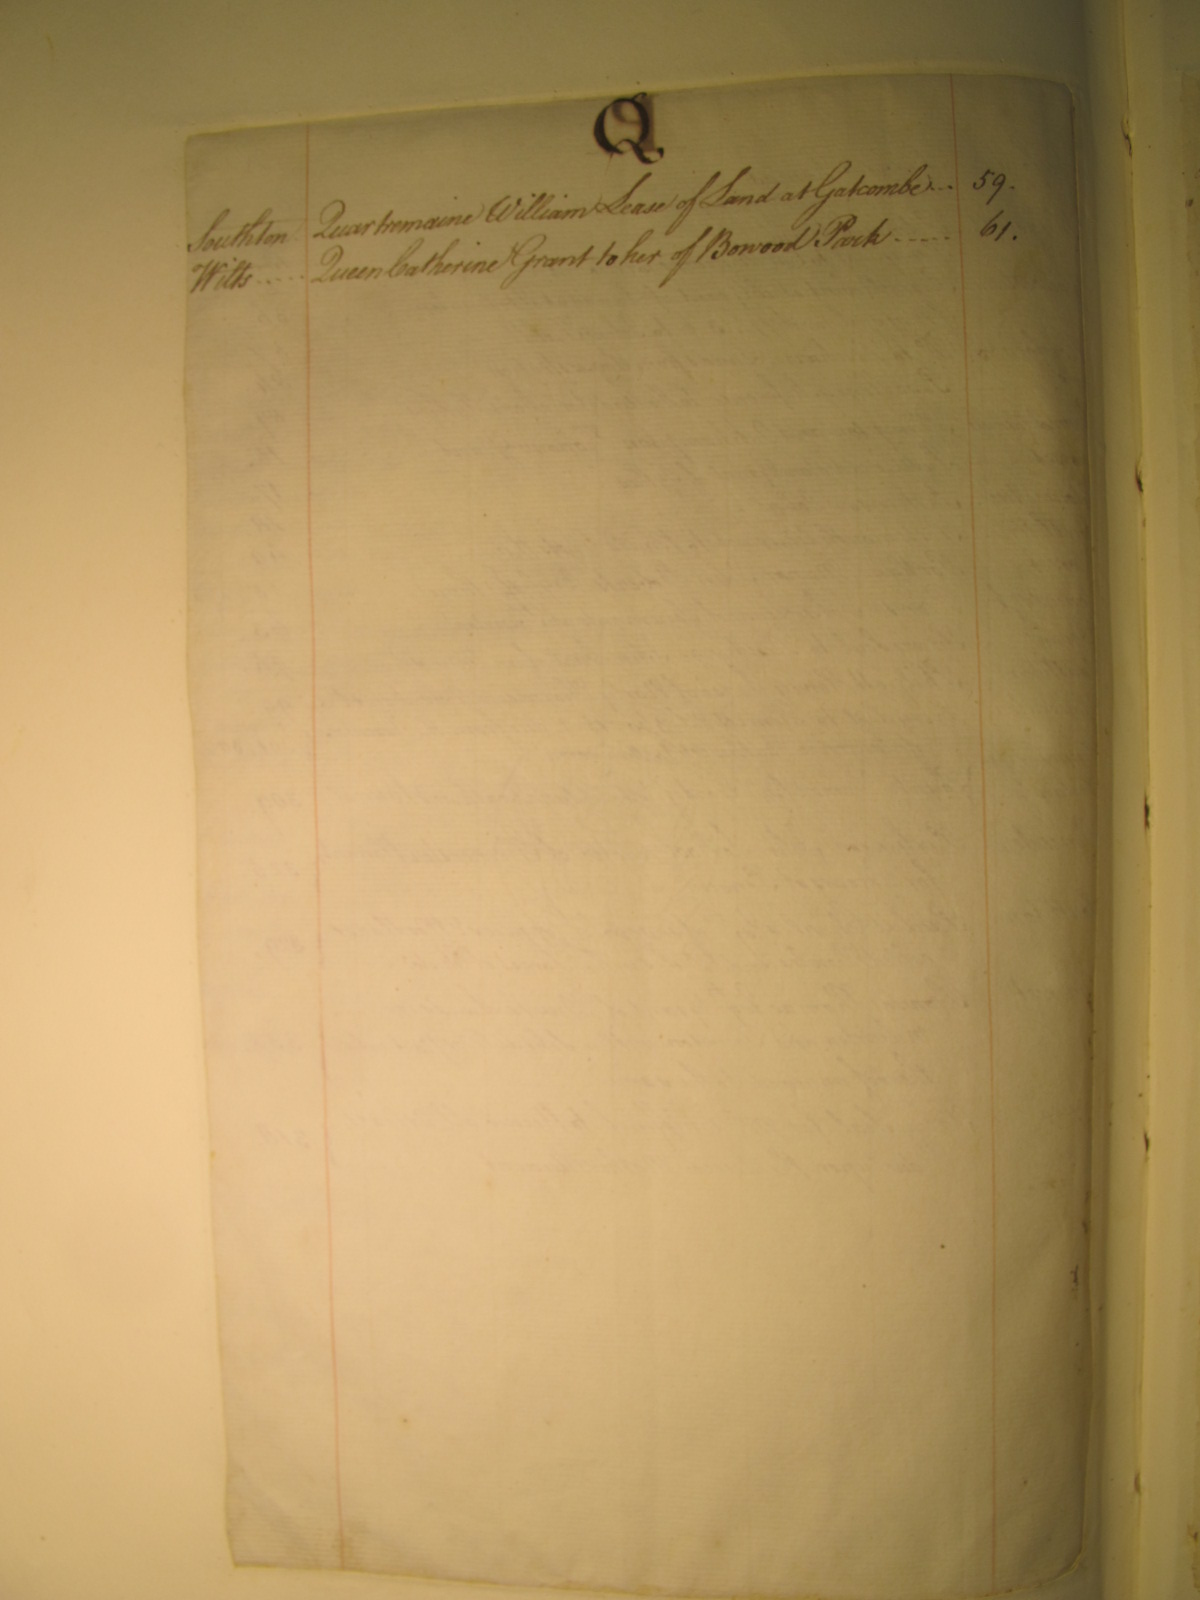 Q
Southton Quartremaine William Lease of Land at Gatcombe ... 59.
Wilts ..... Queen Catherine Grant to her of Bowood Park ..... 61.